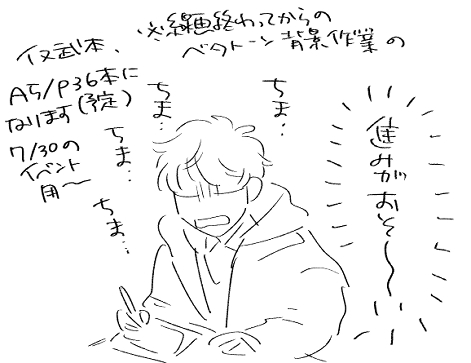 ※線画終わってからの
ベタトーン背景作業の
進みがおそ〜〜
ちま…
ちま…
ちま…
ちま…
イヌ武本、
A5/P36本に
なります(予定)
7/30の
イベント
用〜